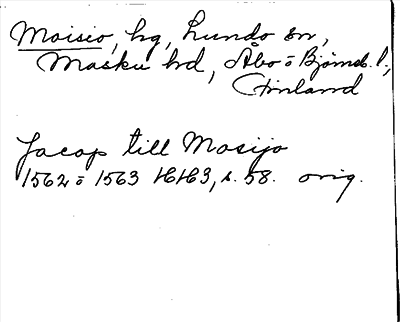 Moisio, hg, Lundo sn,
Masku hd, Åbo o Björneb. l.,
Finland
Jacop till Mosijo
1562 o 1563 HH3, s. 58. orig.